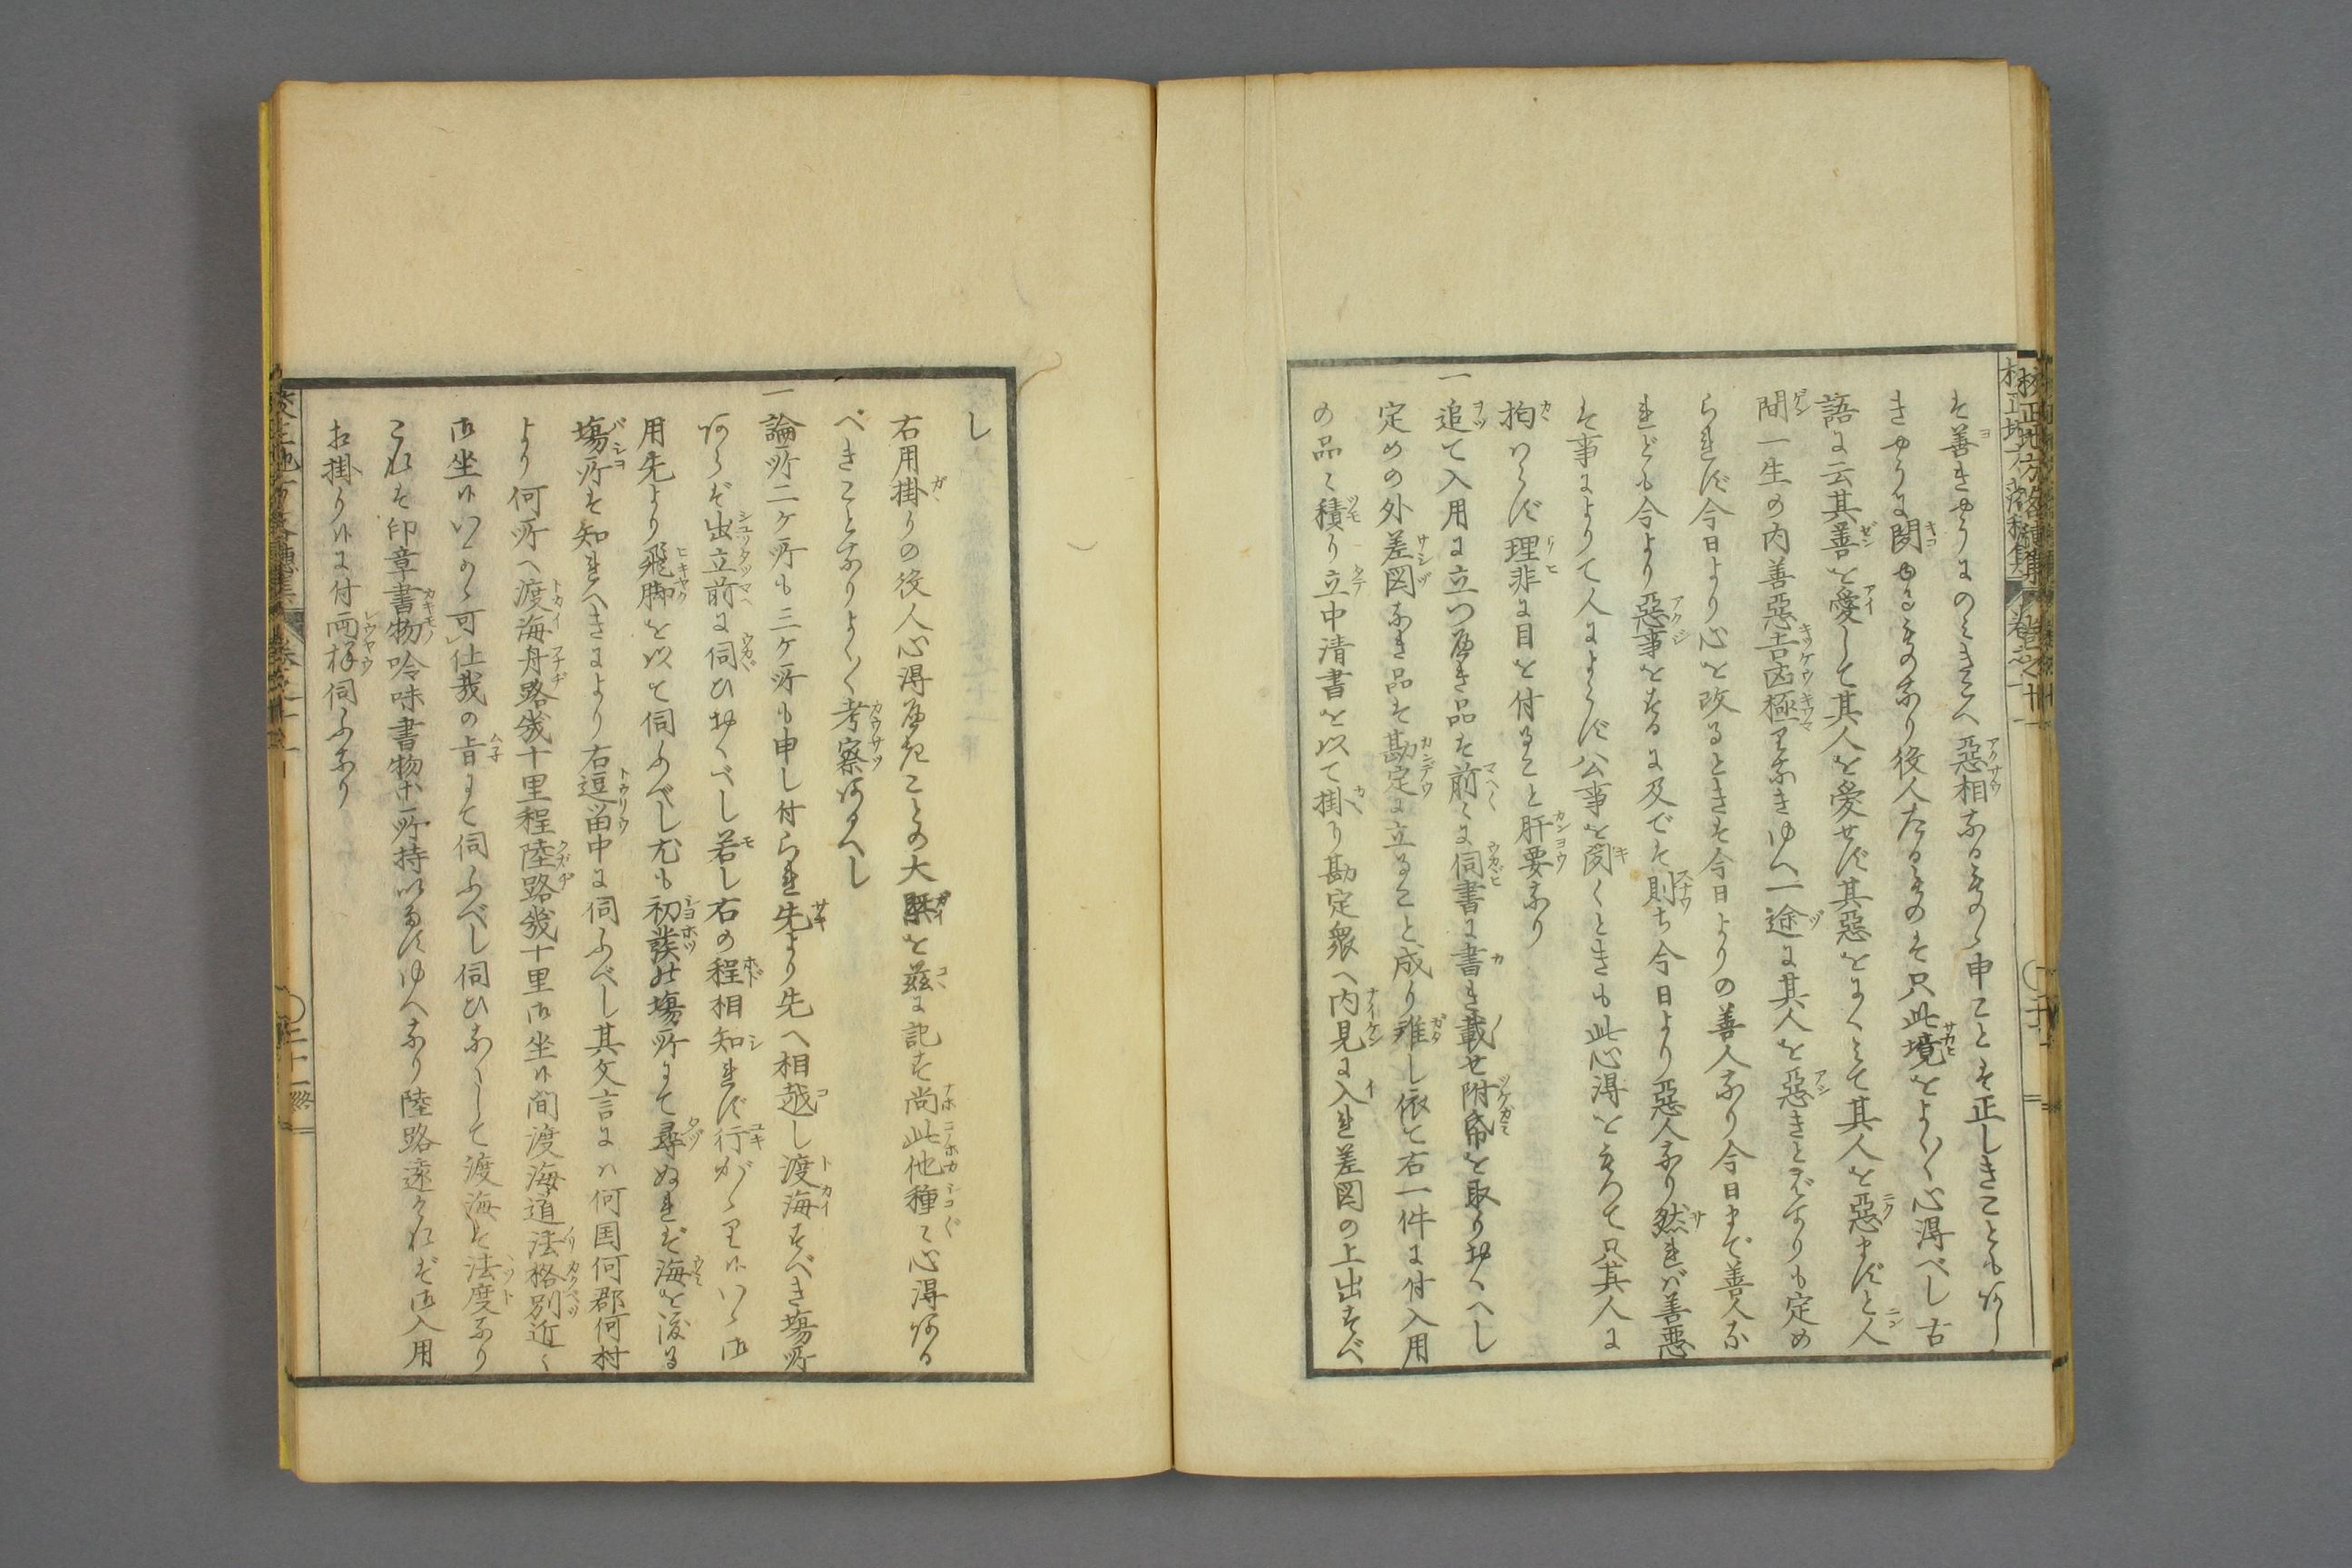 は善きやうにのミきこへ惡相なるもの申ことは正しきことも
きやうに聞ゆるもの也り役人たるものは只此境をよく〳〵心得べし古
語に云其善を愛して其人を愛せず其惡をにくミて其人を惡まずと人
間一生の内善惡吉凶極りなきゆへ一途に其人を惡きと
られず今日より心を改るときは今日よりの善人なり今日まで善人な
れども今より惡事をするに及では則ち今日より惡人なり然れバ善悪
は事によりて人によらず公事を聞くときも此心得をもつて只其人に
拘ハらず理非に目を付ること肝要なり
一追て入用に立つべき品は前〻に伺書に書き載せ附帋を取り置くへし
定めの外差図なき品は勘定に立ること成り難し依て右一件に付入用
の品〻積り立中清書を以て掛り勘定衆へ内見に入れ差図の上出すべ
し
右用掛りの役人心得べきことの大槩を茲に記す尚此他種〻心得ある
べきことなりよく〳〵考察あるへし
一論所二ケ所も三ケ所も申し付られ先より先へ相越し渡海すべき場所
あらバ出立前に伺ひ置くべし若し右の程相知れず行がゝりにハゝ御
用先より飛脚を以て伺ふべし尤も初発の場所にて尋ぬれバ海を渡る
場所は知れへきにより右逗留中に伺ふべし其文言にハ何国何郡何村
より何所へ渡海舟路幾十里程陸路幾十里御坐候間渡海道法格別近く
御坐候ハゝ可仕哉の旨にて伺ふべし伺ひなくして渡海は法度なり
これは印章書物吟味書物等所持いたすゆへなり陸路遠けれバ御入用
相掛り候に付両様伺ふなり